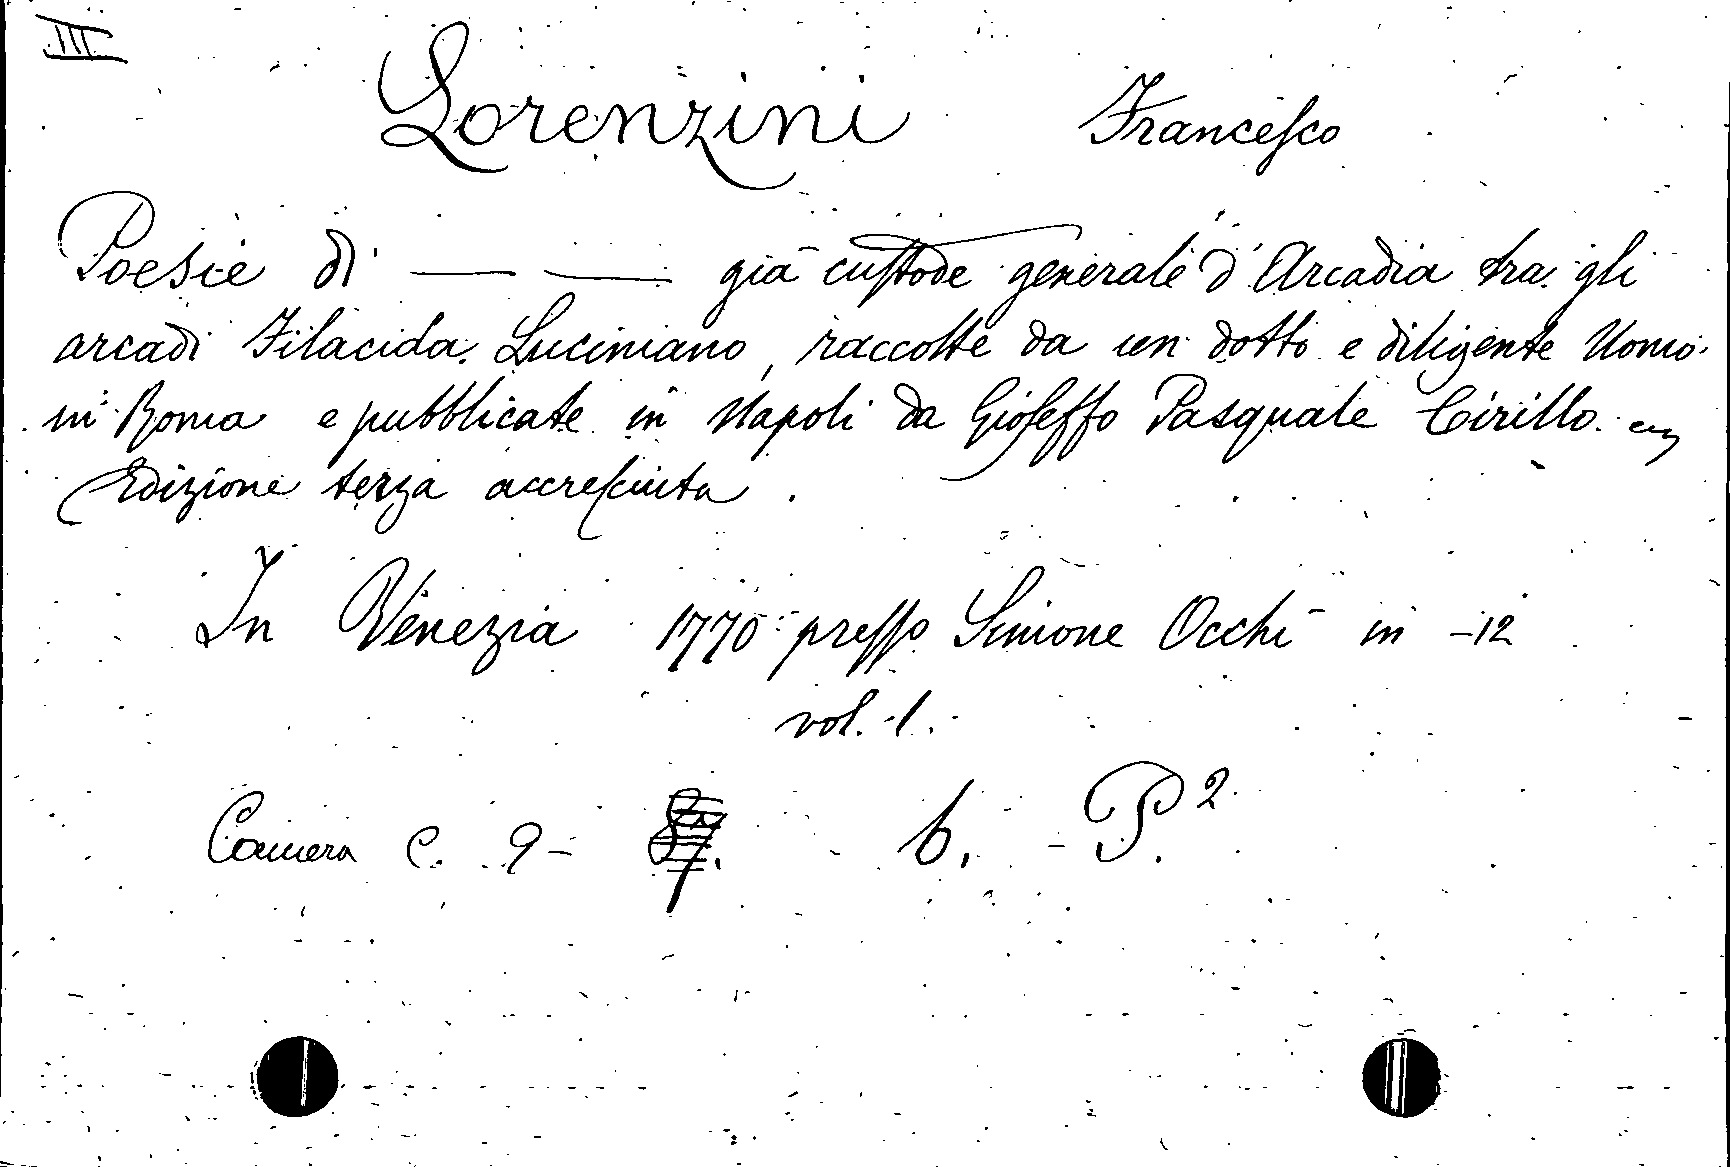 III
Lorenzini Francesco
Poesie di — — già custode generale d'Arcadia tra gli
arcadi Filacida Luciniano, raccolte da un dotto e diligente Uomo
in Roma e pubblicate in Napoli da Gioseffo Pasquale Cirillo.
Edizione terza accresciuta.
In Venezia 1770 presso Simone Occhi in -12
vol. 1.
Camera C. 9- b. P.2